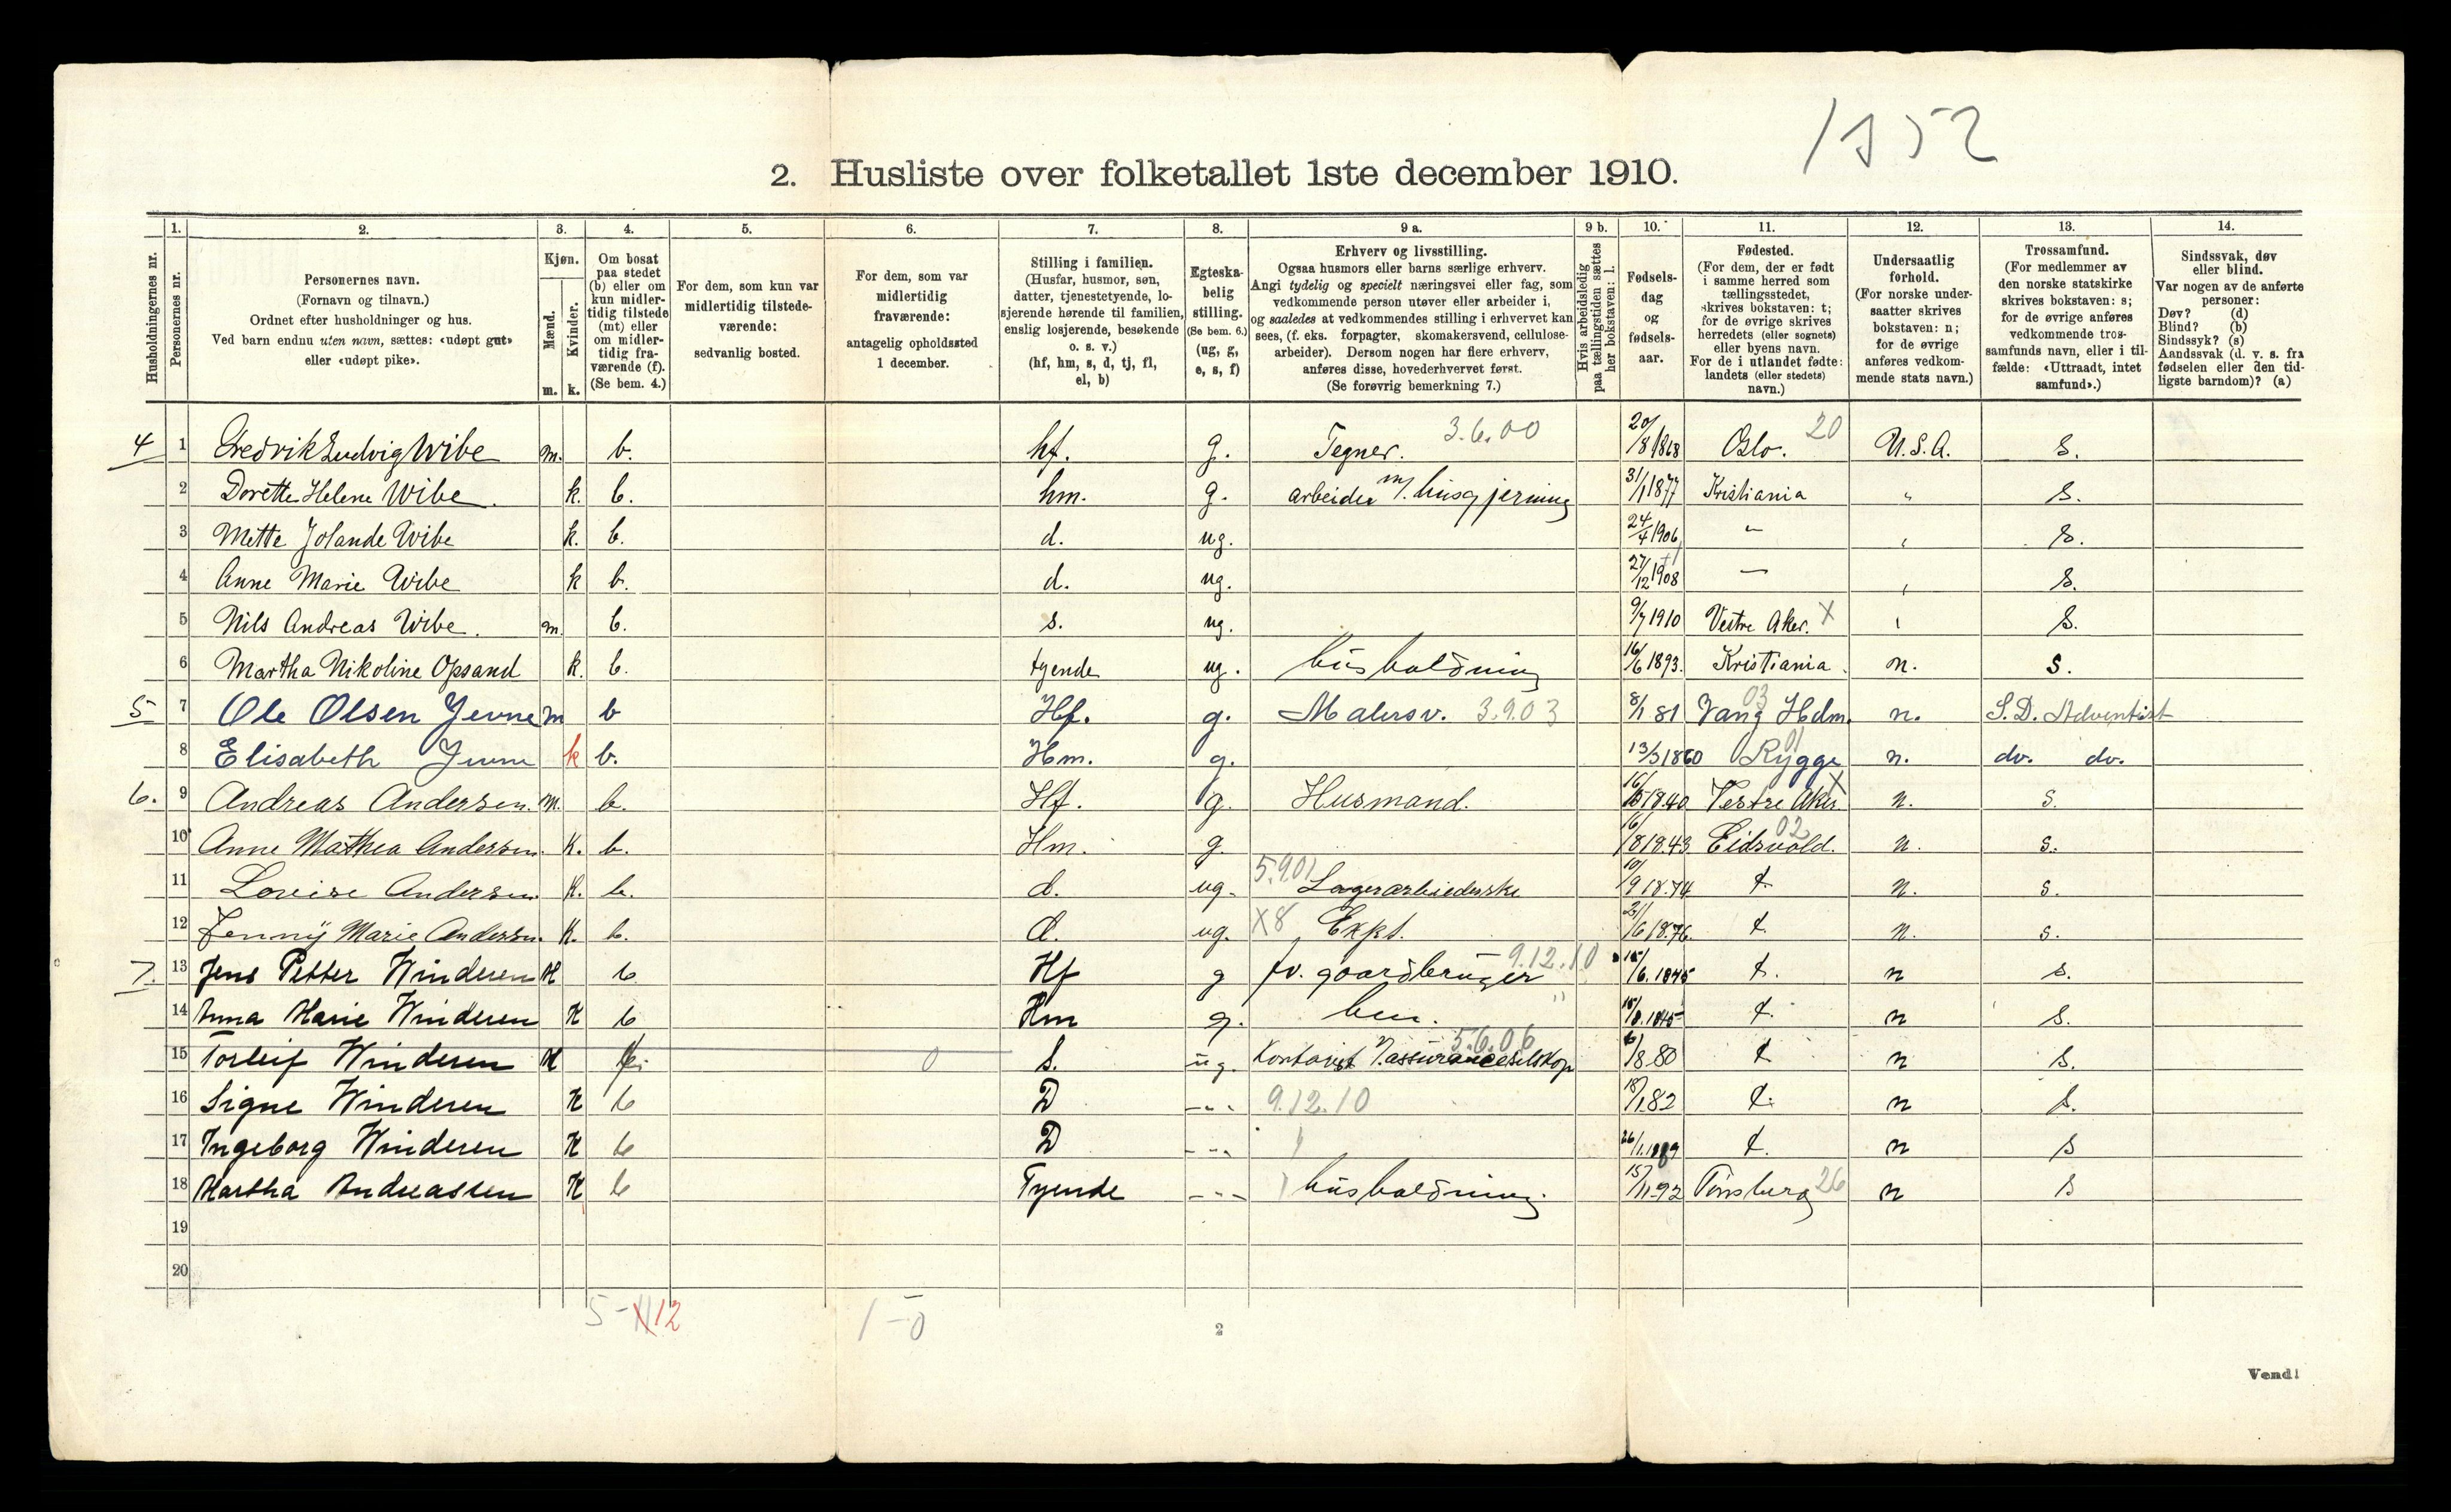 1952
2. Husliste over folketallet 1ste december 1910.
Husholdningernes nr.
1. Personernes nr.
2. Personernes navn.
(Fornavn og tilnavn.)
Ordnet efter husholdninger og hus.
Ved barn endnu uten navn, sættes: «udøpt gut»
eller «udøpt pike».
3. Kjøn.
Mænd. m.
Kvinder. k.
4. Om bosat
paa stedet
(b) eller om
kun midler-
tidig tilstede
(mt) eller
om midler-
tidig fra-
værende (f).
(Se bem. 4.)
5. For dem, som kun var
midlertidig tilstede-
værende:
sedvanlig bosted.
6. For dem, som var
midlertidig
fraværende:
antagelig opholdssted
1 december.
7. Stilling i familien.
(Husfar, husmor, søn,
datter, tjenestetyende, lo-
sjerende hørende til familien,
enslig losjerende, besøkende
o. s. v.)
(hf, hm, s, d, tj, fl,
el, b)
8. Egteska-
belig
stilling.
(Se bem. 6.)
(ug, g,
e, s, f)
9 a. Erhverv og livsstilling.
Ogsaa husmors eller barns særlige erhverv.
Angi tydelig og specielt næringsvei eller fag, som
vedkommende person utøver eller arbeider i,
og saaledes at vedkommendes stilling i erhvervet kan
sees, (f. eks. forpagter, skomakersvend, cellulose-
arbeider). Dersom nogen har flere erhverv,
anføres disse, hovederhvervet først.
(Se forøvrig bemerkning 7.)
9 b. Hvis arbeidsledig
paa tællingstiden sættes
her bokstaven: l.
10. Fødsels-
dag
og
fødsels-
aar.
11. Fødested.
(For dem, der er født
i samme herred som
tællingsstedet,
skrives bokstaven: t;
for de øvrige skrives
herredets (eller sognets)
eller byens navn.
For de i utlandet fødte:
landets (eller stedets)
navn.)
12. Undersaatlig
forhold.
(For norske under-
saatter skrives
bokstaven: n;
for de øvrige
anføres vedkom-
mende stats navn.)
13. Trossamfund.
(For medlemmer av
den norske statskirke
skrives bokstaven: s;
for de øvrige anføres
vedkommende tros-
samfunds navn, eller i til-
fælde: «Uttraadt, intet
samfund».)
14. Sindssvak, døv
eller blind.
Var nogen av de anførte
personer:
Døv? (d)
Blind? (b)
Sindssyk? (s)
Aandssvak (d. v. s. fra
fødselen eller den tid-
ligste barndom)? (a)
4 1 Fredrik Ludvig Wibe m. b. hf. g. Tegner. 3.6.00 20/8 1868 Oslo. 20 U.S.A. S.
2 Dorette Helene Wibe. k. b. hm. g. arbeider m/. husgjerning 31/1 1877 Kristiania " S.
3 Mette Jolande Wibe k. b. d. ug. 24/4 1906 " " S.
4 Anne Marie Wibe k b. d. ug. 27/12 1908 — " S.
5 Nils Andreas Wibe. m. b. s. ug. 9/7 1910 Vestre Aker. X " S.
6 Martha Nikoline Opsand k. b. tyende ug. husholdning 16/6 1893. Kristiania. n. S.
5 7 Ole Olsen Jevne m b Hf. g. Malersv. 3.9.03 8/1 81 Vang Hdm. 03 n. S.D. Adventist
8 Elisabeth Jevne k b. Hm. g. 13/3 1860 Rygge 01 n. do. do.
6. 9 Andreas Andersen. m. b. Hf. g. Husmand. 1840 Vestre Aker. X n. s.
10 Anne Mathea Andersen. K. b. Hm. g. 16/8 1843 Eidsvold. 02 n. s.
11 Lovise Andersen. K. b. d. ug. 5.9.01 Lagerarbeiderske 10/9 1874 t. n. s.
12 Jenny Marie Andersen. K. b. d. ug. X8 Expt. 21/6 1876. t. n. s.
7. 13 Jens Petter Winderen M b Hf g fv. gaardbruger 9.12.10 15/6. 1845 t. n s.
14 Anna Marie Winderen K b Hm g. hm. " 15/8. 1845 t. n s.
15 Torleif Winderen M s. ug. Kontorist I. assuranceselskap 5.6.06 6/8 80 t n s.
16 Signe Winderen K b D -"- 9.12.10 18/1 82 t. n s.
17 Ingeborg Winderen K b D -"- 26/1. 1889 t. n s
18 Martha Andreassen K b Tyende -"- husholdning. 15/11 92 Tønsberg 26 n s
19
20
5-11 12
1-0
2
Vend!